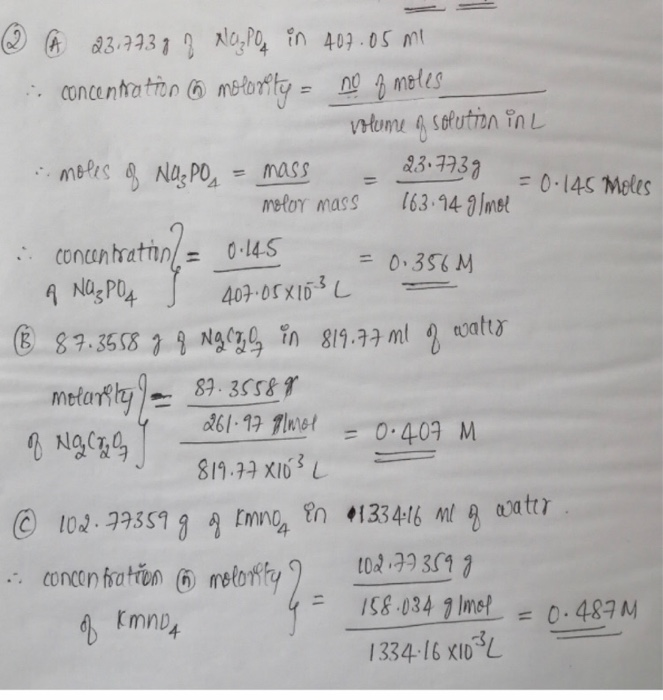 ② Ⓐ 23.773 g of Na₃PO₄ in 407.05 ml
∴ concentration (or) molarity = no of moles / volume of solution in L
∴ moles of Na₃PO₄ = mass / molar mass = 23.773g / 163.94 g/mol = 0.145 Moles
∴ concentration of Na₃PO₄ } = 0.145 / 407.05 × 10⁻³ L = 0.356 M
Ⓑ 87.3558 g of Na₂Cr₂O₇ in 819.77 ml of water
molarity of Na₂Cr₂O₇ } = 87.3558 g / 261.97 g/mol / 819.77 × 10⁻³ L = 0.407 M
Ⓒ 102.77359 g of KmnO₄ in 1334.16 ml of water.
∴ concentration (or) molarity of KmnO₄ } = 102.77359 g / 158.034 g/mol / 1334.16 × 10⁻³ L = 0.487 M